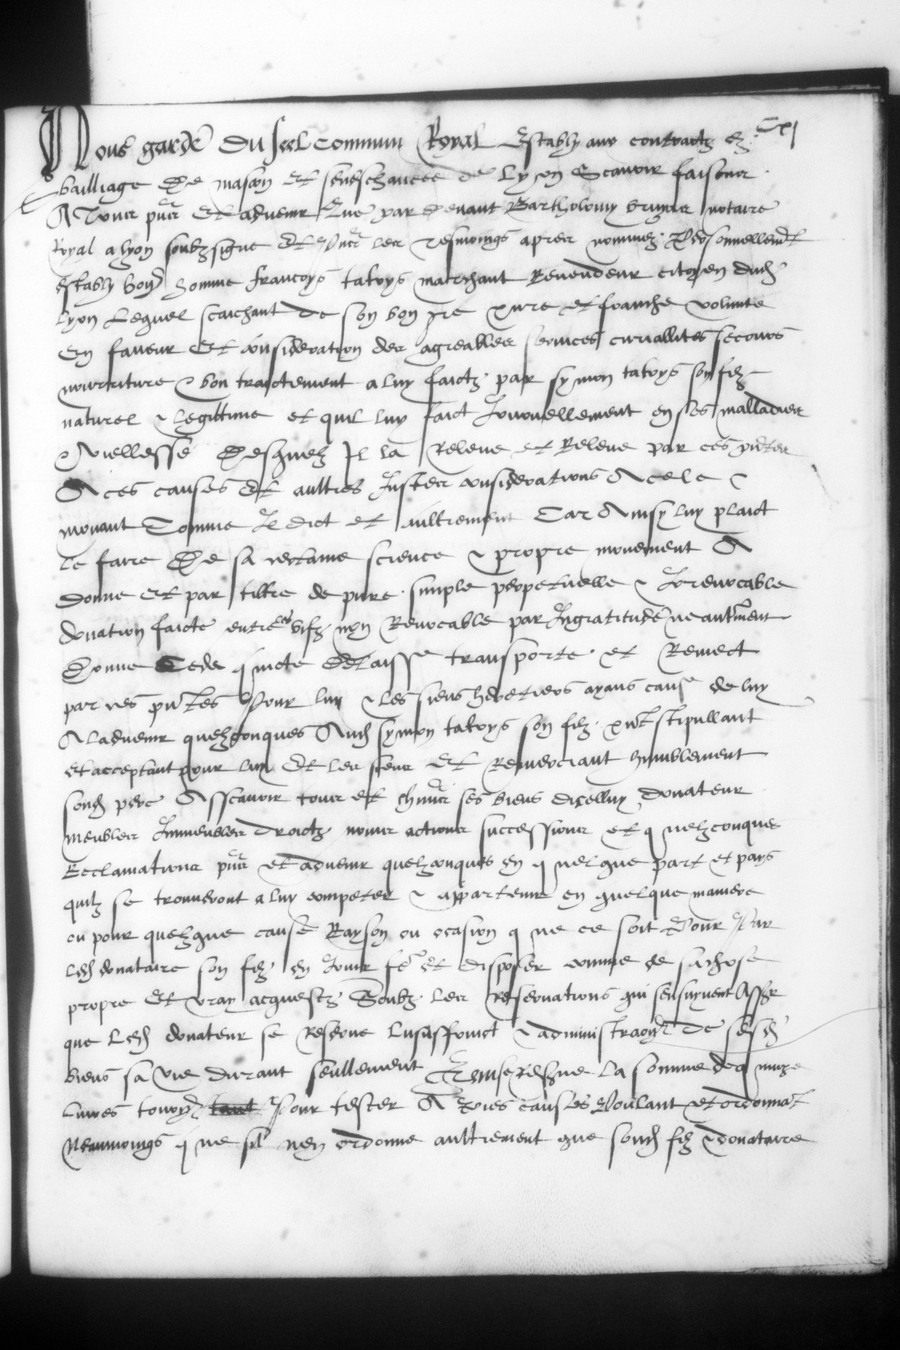 Cxj
Nous garde du seel commun Royal estably aux contractz es
bailliage de mascon et seneschaucee de lyon Scavoir faisons
A Tous pntz Et advenir Que par devant Bartholomy notaire
Royal a lyon soubzsigne Et pntz les tesmoings apres nommez personnellement
estably honn homme francoys tatoys marchant Revendeur citoyen dud
lyon Lequel scaichant de son bon gre pure et franche volunte
En faveur Et consideration des agreables services curiallites secours
nourriture & bon traictement a luy faictz par symon tatoys son filz
naturel & legittime et quil luy faict Journellement en ses malladies
& viellesse desquelz Il la Releve et Releve par ces pntes
A ces causes Et aultres Justes considerations A ce le
movant Comme Il dict et aultrement Car Ainsy luy plaict
le faire De sa certaine science & propre movement A
donne et par tiltre de pure simple perpetuelle & Irrevocable
donation faicte entre vifz non Revocable par Ingratitude ne aultrement
Donne Cede quicte delaisse transporte et Remect
par ces pntes Pour luy & les siens heretiers ayans cause de luy
A ladvenir quelzconques Aud symon tatoys son filz pnt stipullant
et acceptant pour luy Et les siens Et Remerciant humblement
sond pere Asscavoir tous et chuns ses biens dicelluy donateur
meubles Immeubles droictz noms actions successions et quelzconques
Reclamations pntz et advenir quelzconques en quelque part et pays
quilz se trouveront a luy competer & appartenir en quelque maniere
ou pour quelzque cause Rayson ou ocasion que ce soit Pour Par
led donataire son filz en Jouir fe et disposer comme de sa chose
propre Et vray acquestz Soubz les Reservations qui sensuyvent Assr
que Led donateur se Reserve lusuffruict & administraon de sesd
biens sa vie durant seullement Item se reserve la somme de quinze
livres tourn Pour tester A toutes causes Voulant et ordonnat
Neanmoings que sil nen ordonne aultrement que sond filz & donataire